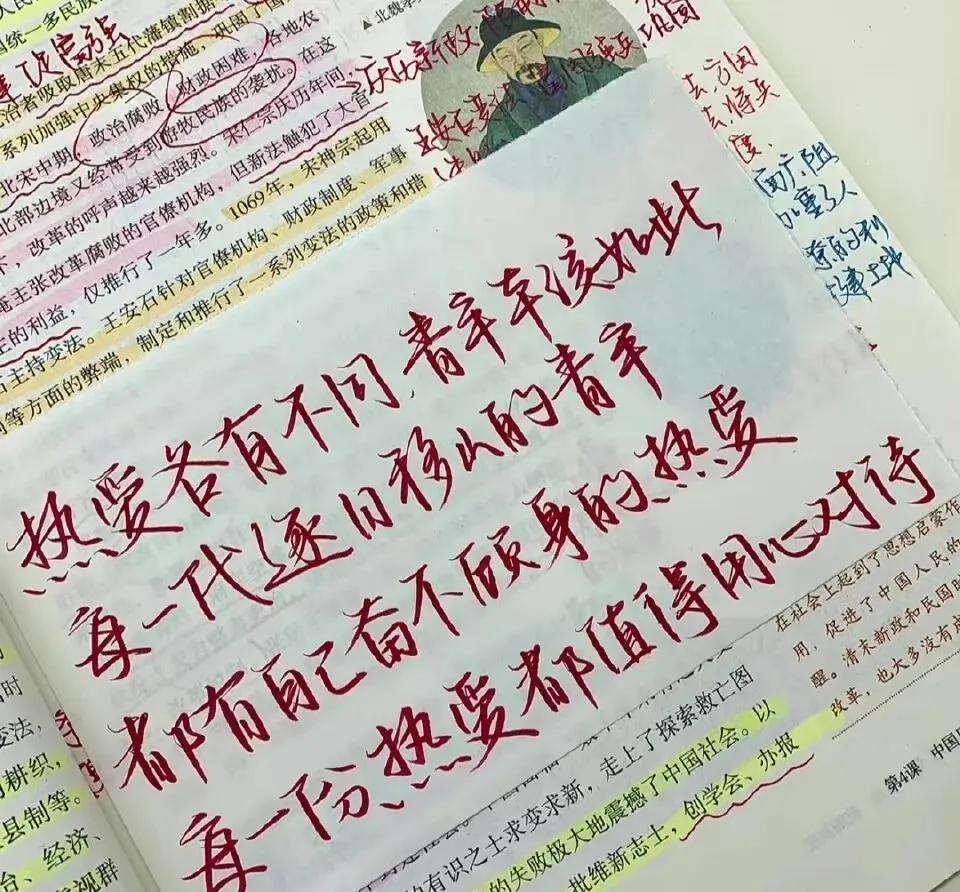 统一多民族
北魏孝
治者吸取唐末五代藩镇割据
系列加强中央集权的措施，
北宋中期，政治腐败，财政困难，各地农
北部边境又经常受到游牧民族的袭扰。在这
，改革的呼声越来越强烈。宋仁宗庆历年间，
主张改革腐败的官僚机构，但新法触犯了大官
的利益，仅推行了一年多。1069年，宋神宗起用
主持变法。王安石针对官僚机构、财政制度、军事
等方面的弊端，制定和推行了一系列变法的政策和措
热爱各有不同,青年本该如此
每一代逐日移山的青年
都有自己奋不顾身的热爱
每一份热爱都值得用心对待
在社会上起到了思想启蒙作
用，促进了中国人民的
醒。清末新政和民国时
改革，也大多没有成
第4课 中国历
时
变法，
耕织，
县制等。
、经济、
视群
的有识之士求变求新，走上了探索救亡图
的失败极大地震撼了中国社会。以
批维新志士，创学会、办报